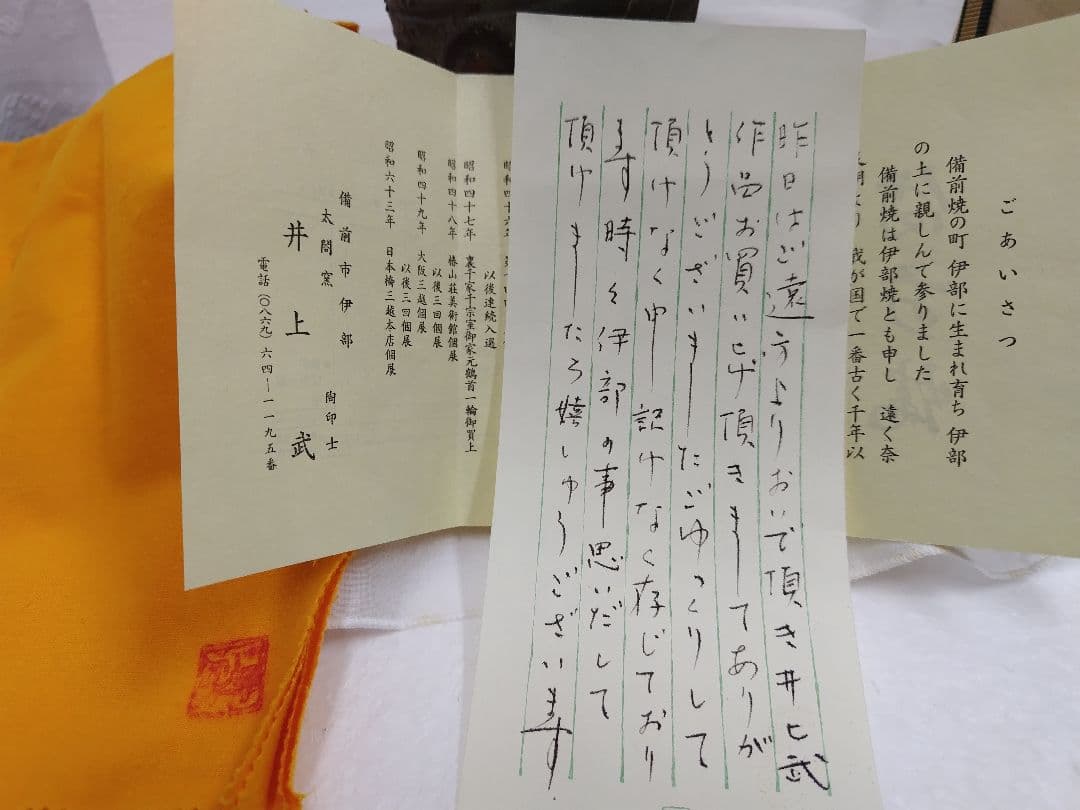 ごあいさつ
備前焼の町 伊部に生まれ育ち 伊部
の土に親しんで参りました
備前焼は伊部焼とも申し 遠く奈
我が国で一番古く千年以
昨日はご遠方よりおいで頂き井上武
作品お買い上げ頂きましてありが
とうございましたごゆっくりして
頂けなく申し訳けなく存じており
ます時々伊部の事思いだして
頂けましたら嬉しゅうございます
以後連続入選
昭和四十七年 裏千家千宗室御家元鶴首一輪御買上
昭和四十八年 椿山荘美術館個展
以後三回個展
昭和四十九年 大阪三越個展
以後三回個展
昭和六十三年 日本橋三越本店個展
備前市伊部 陶印士
太閤窯
井上武
電話(〇八六九)六四―一一九五番